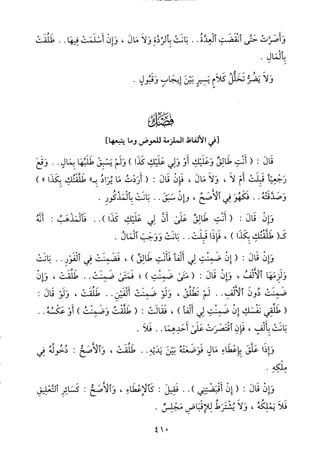 وَأَصَرَّتْ حَتَّى انْقَضَتِ الْعِدَّةُ.. بَانَتْ بِالرِّدَّةِ وَلاَ مَالَ ، وَإِنْ أَسْلَمَتْ فِيهَا.. طَلُقَتْ
بِالْمَالِ .
وَلاَ يَضُرُّ تَخَلُّلُ كَلاَمٍ يَسِيرٍ بَيْنَ إِيجَابٍ وَقَبُولٍ .
فَصْلٌ
[في الألفاظ الملزمة للعوض وما يتبعها]
قَالَ : ( أَنْتِ طَالِقٌ وَعَلَيْكِ أَوْ وَلِي عَلَيْكِ كَذَا ) وَلَمْ يَسْبِقْ طَلَبُهَا بِمَالٍ.. وَقَعَ
رَجْعِيّاً قَبِلَتْ أَمْ لاَ ، وَلاَ مَالَ ، فَإِنْ قَالَ : ( أَرَدْتُ مَا يُرَادُ بِـ« طَلَّقْتُكِ بِكَذَا » )
وَصَدَّقَتْهُ.. فَكَهُوَ فِي الأَصَحِّ ، وَإِنْ سَبَقَ.. بَانَتْ بِالْمَذْكُورِ .
وَإِنْ قَالَ : ( أَنْتِ طَالِقٌ عَلَىٰ أَنَّ لِي عَلَيْكِ كَذَا ).. فَالْمَذْهَبُ : أَنَّهُ
كَـ( طَلَّقْتُكِ بِكَذَا ) ، فَإِذَا قَبِلَتْ.. بَانَتْ وَوَجَبَ الْمَالُ .
وَإِنْ قَالَ : ( إِنْ ضَمِنْتِ لِي أَلْفاً فَأَنْتِ طَالِقٌ ) ، فَضَمِنَتْ فِي الْفَوْرِ.. بَانَتْ
وَلَزِمَهَا الأَلْفُ ، وَإِنْ قَالَ : ( مَتَىٰ ضَمِنْتِ ) ؛ فَمَتَىٰ ضَمِنَتْ.. طَلُقَتْ ، وَإِنْ
ضَمِنَتْ دُونَ الأَلْفِ.. لَمْ تَطْلُقْ ، وَلَوْ ضَمِنَتْ أَلْفَيْنِ.. طَلُقَتْ ، وَلَوْ قَالَ :
( طَلِّقِي نَفْسَكِ إِنْ ضَمِنْتِ لِي أَلْفاً ) ، فَقَالَتْ : ( طَلَّقْتُ وَضَمِنْتُ ) أَوْ عَكْسَهُ..
بَانَتْ بِأَلْفٍ ، فَإِنِ اقْتَصَرَتْ عَلَىٰ أَحَدِهِمَا.. فَلاَ .
وَإِذَا عَلَّقَ بِإِعْطَاءِ مَالٍ فَوَضَعَتْهُ بَيْنَ يَدَيْهِ.. طَلُقَتْ ، وَالأَصَحُّ : دُخُولُهُ فِي
مِلْكِهِ .
وَإِنْ قَالَ : ( إِنْ أَقْبَضْتِنِي ).. فَقِيلَ : كَالإِعْطَاءِ ، وَالأَصَحُّ : كَسَائِرِ التَّعْلِيقِ
فَلاَ يَمْلِكُهُ ، وَلاَ يُشْتَرَطُ لِلإِقْبَاضِ مَجْلِسٌ .
٤١٠